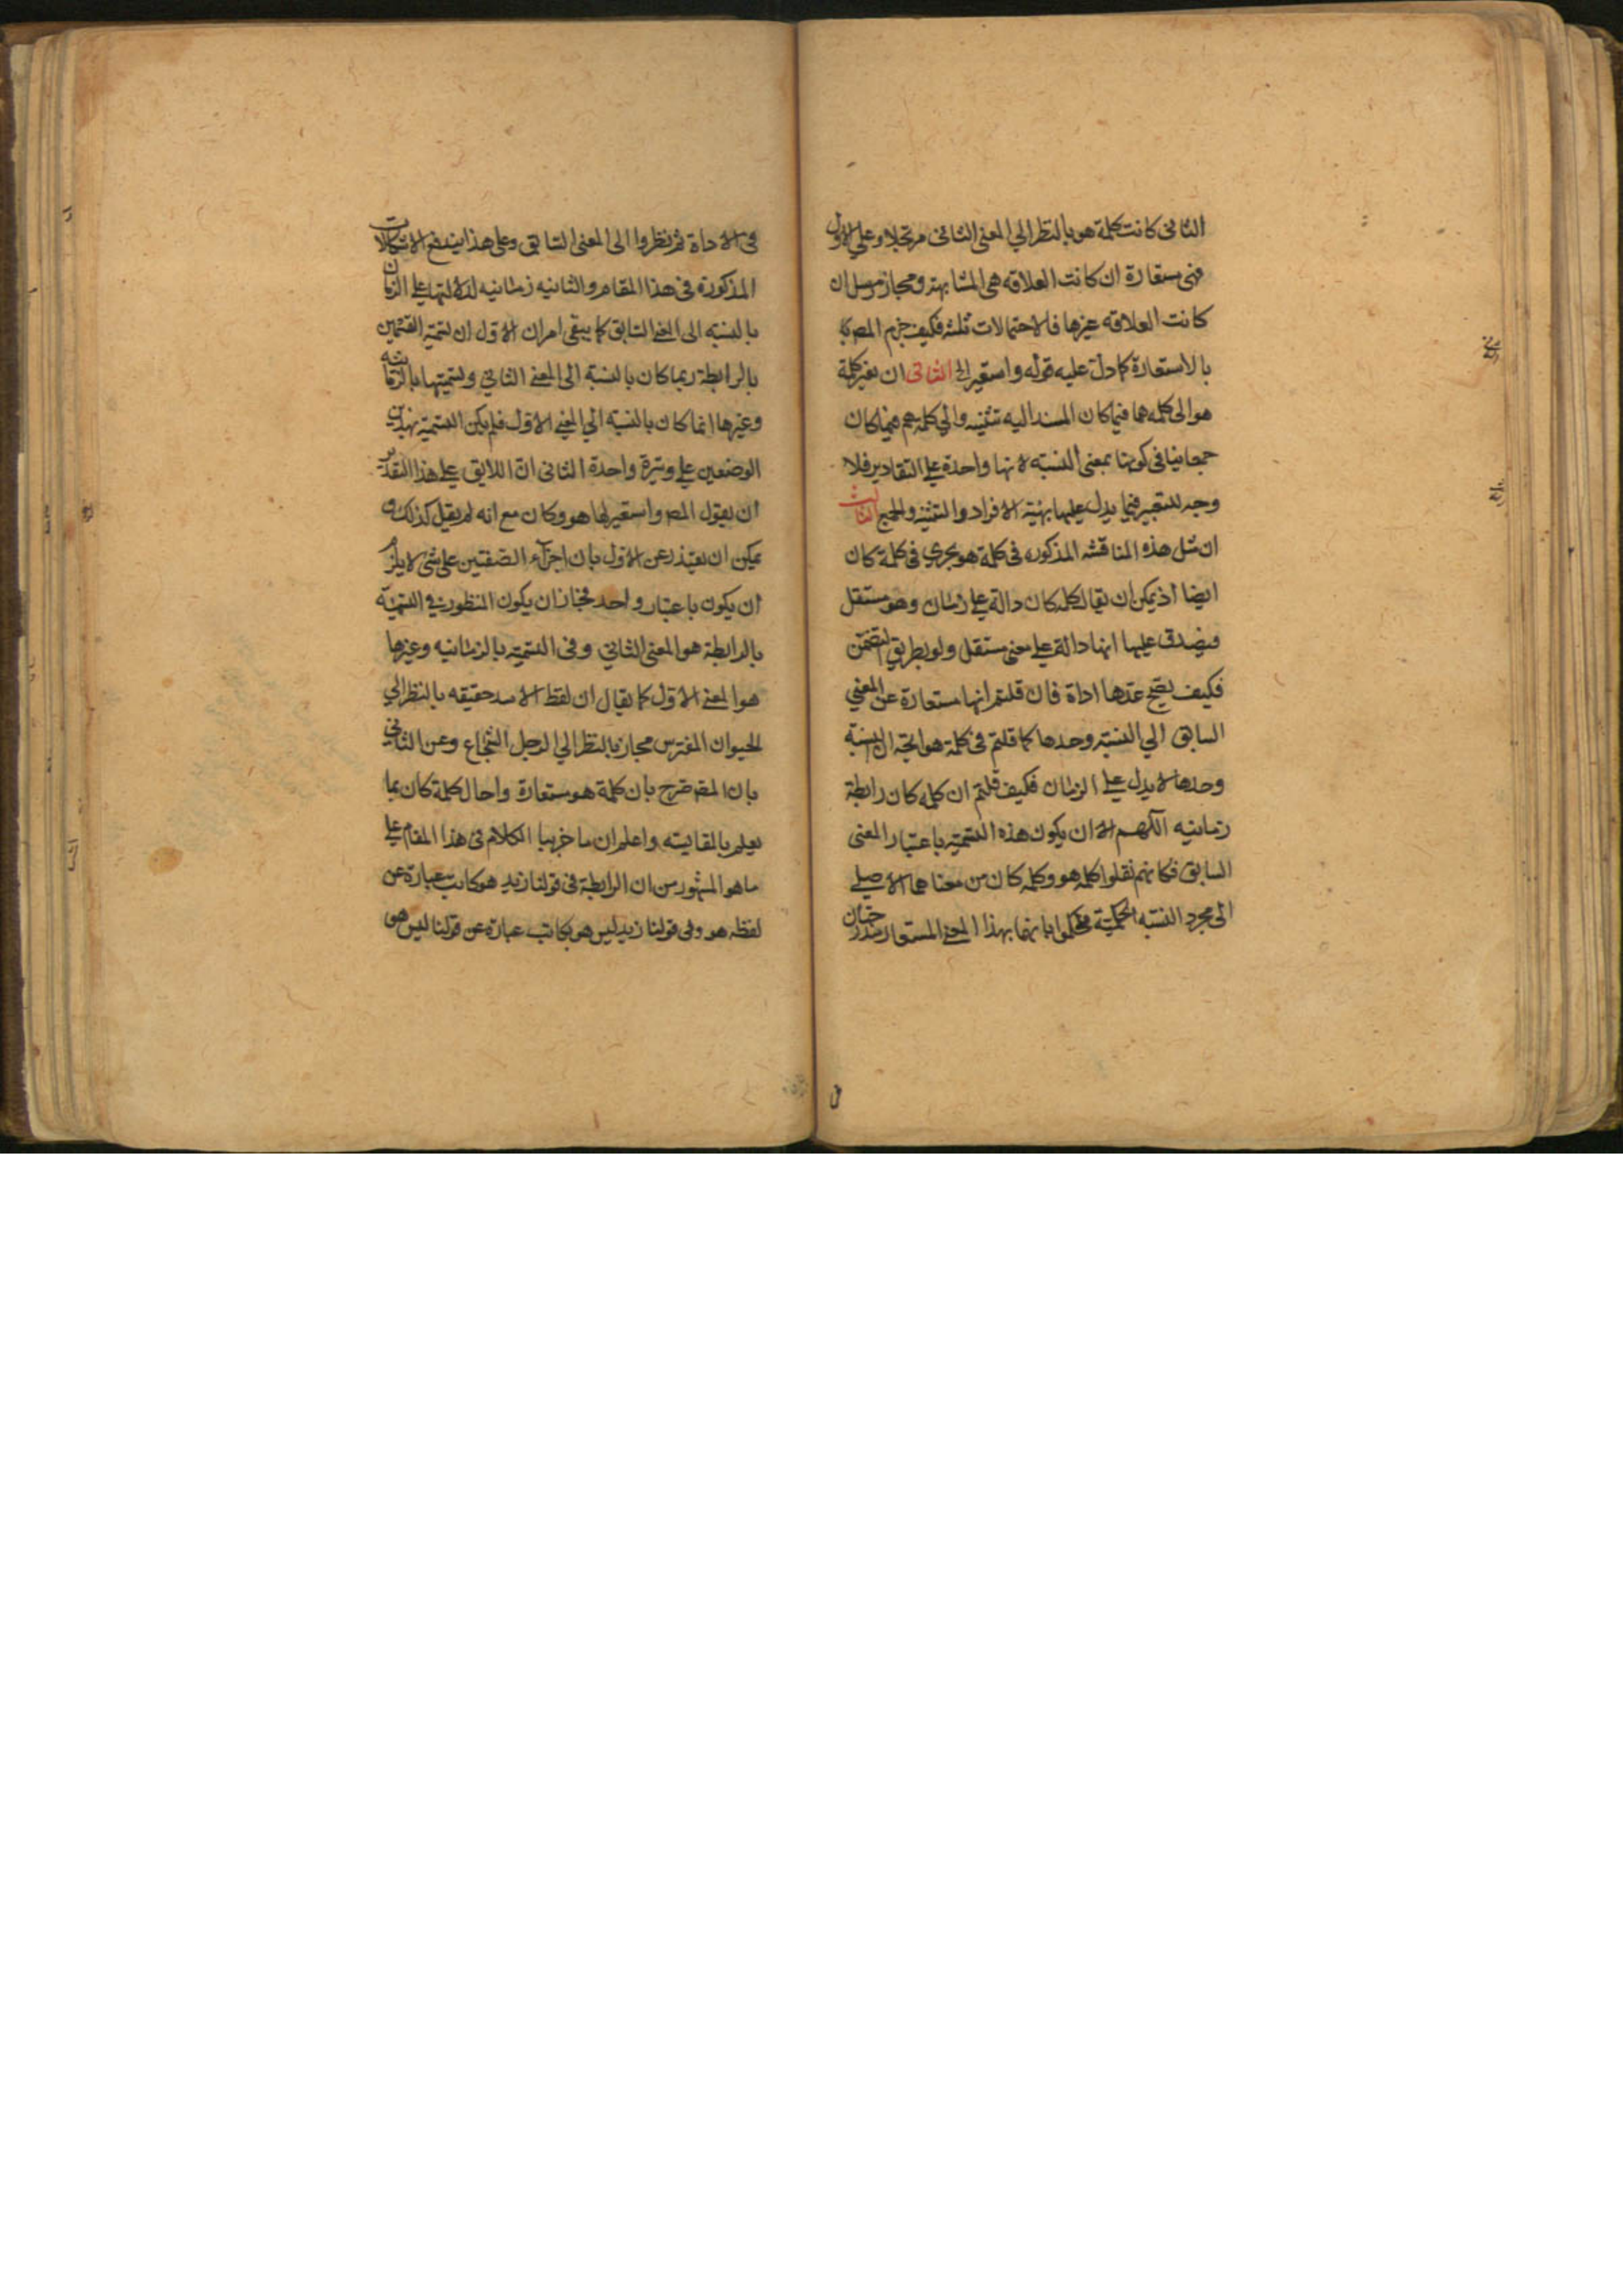 الثانى كانت كلمة هو بالنظر الي المعنى الثانى مرتجلا وعلي الاول
فهى مستعارة ان كانت العلاقه هى المشابهة ومجاز مرسل ان
كانت العلاقه غيرها فالاحتمالات ثلثه فكيف جزم المصـ
بالاستعارة كما دل عليه قوله واستعير الى الثانى ان تغير كلمة
هو الى كلمه هما فيما كان المسند اليه تثنيه والي كلمة هم فيما كان
جمعا ينافى كونها بمعنى النسبه لانها واحدة على التقادير فلا
وجه للتغير فيما يدل عليها بهيئة الافراد والتثنيه والجمع الثالث
ان مثل هذه المناقشه المذكوره فى كلمة هو يجرى فى كلمة كان
ايضا اذ يمكن ان يقال كلمه كان دالة علي زمان وهو مستقل
فيصدق عليها انها دالة علي معنى مستقل ولو بطريق التضمن
فكيف يصح عدها اداة فان قلتم انها مستعارة عن المعني
السابق الي النسبة وحدها كما قلتم فى كلمة هو اتجه ان النسبة
وحدها لا يدل على الزمان فكيف قلتم ان كلمه كان رابطة
زمانيه اللهم الا ان يكون هذه التسمية باعتبار المعنى
السابق فكانهم نقلوا كلمه هو وكلمه كان من معناهما الاصلي
الى مجرد النسبه الحكمية فحكموا بانهما بهذا المعنى المستعار مندرجتان
فى الاداة ثم نظروا الى المعنى السابق وعلى هذا يندفع الاشكالات
المذكورة فى هذا المقام والثانيه زمانيه لدلالتها على الزمان
بالنسبه الى المعنى السابق كما يبقى امران الاول ان تسمية القسمين
بالرابطة ربما كان بالنسبة الى المعنى الثاني وتسميتها بالزمانيه
وغيرها انما كان بالنسبه الي المعنى الاول فلم يكن التسمية بهذين
الوضعين علي وتيرة واحدة الثانى ان اللايق علي هذا التقدير
ان يقول المصـ واستعير لها هو وكان مع انه لم يقل كذلك و
يمكن ان يعتذر عن الاول بان اجراء الصفتين على شى لا يلزم
ان يكون باعتبار واحد فجاز ان يكون المنظور في التسمية
بالرابطة هو المعنى الثاني وفى التسمية بالزمانيه وغيرها
هو المعنى الاول كما يقال ان لفظ الاسد حقيقه بالنظر الي
الحيوان المفترس مجاز بالنظر الي الرجل الشجاع وعن الثاني
بان المصـ صرح بان كلمة هو مستعارة واحال كلمة كان بما
يعلم بالمقايسته واعلم ان ما خربنا الكلام فى هذا المقام على
ما هو المشهور من ان الرابطة فى قولنا زيد هو كاتب عبارة عن
لفظه هو وفى قولنا زيد ليس هو بكاتب عبارة عن قولنا ليس هو